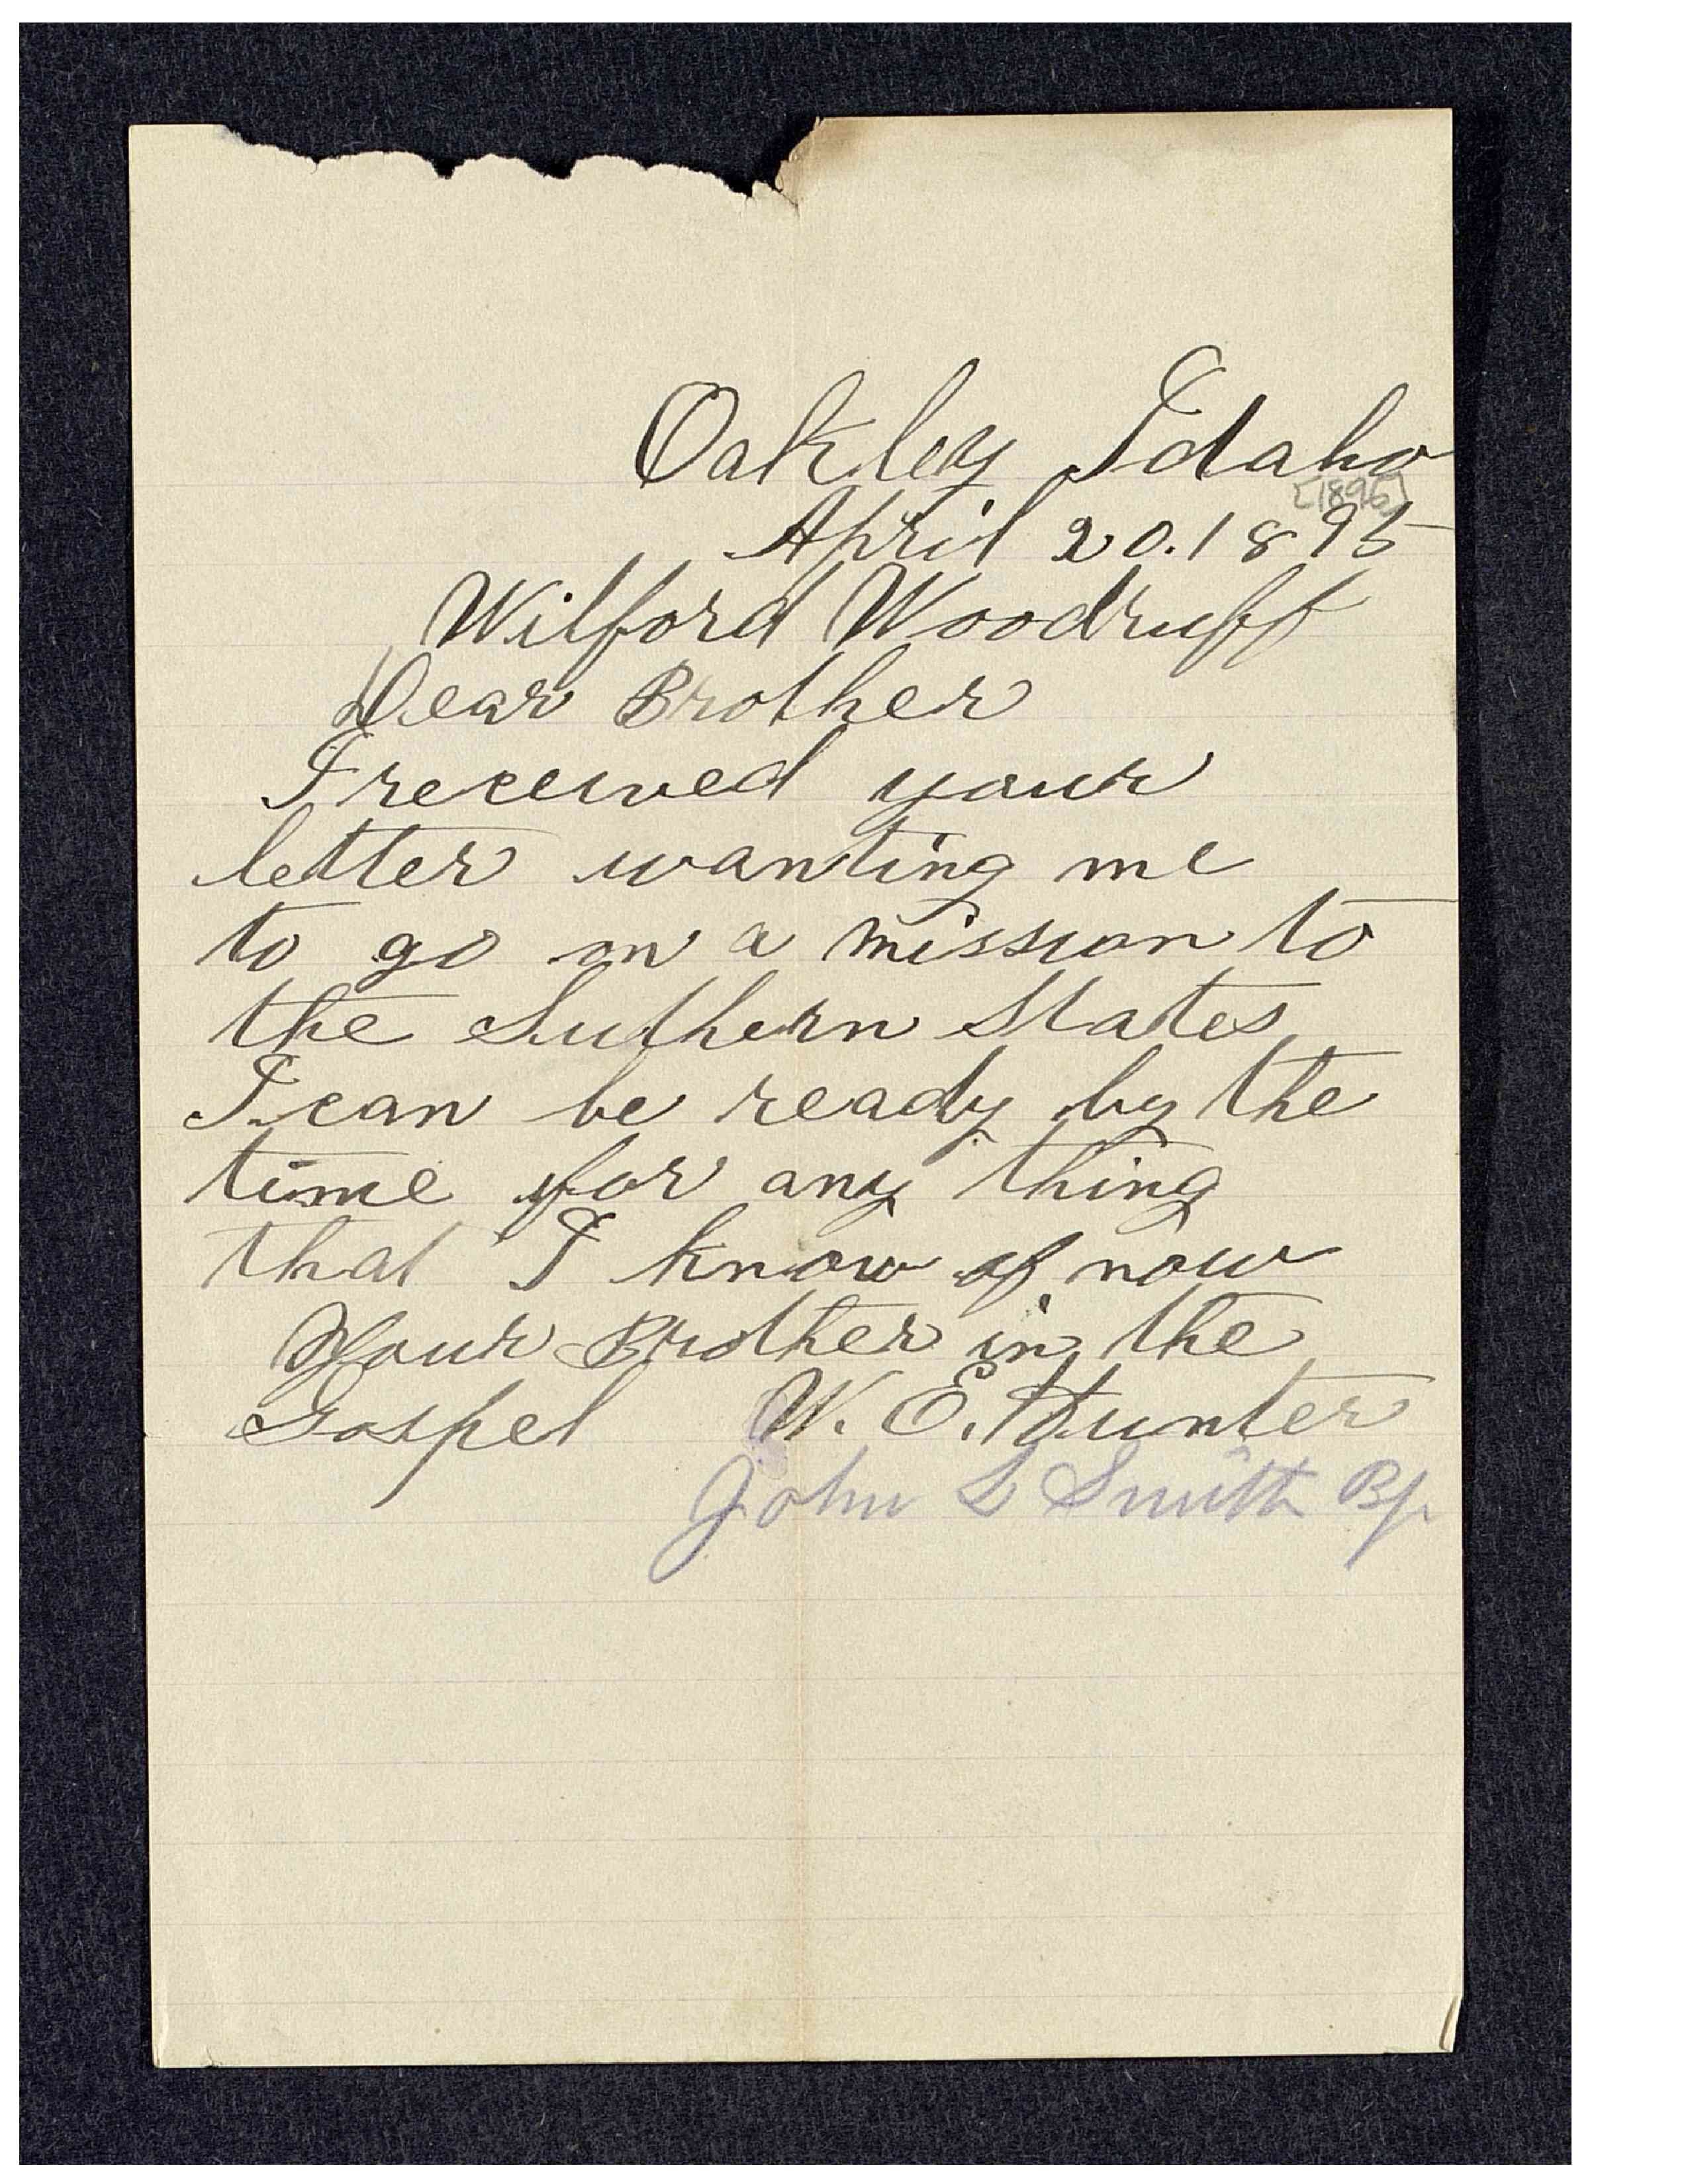 Oakley Idaho
[1896]
April 20. 1895
Wilford Woodruff
Dear Brother
I received your
letter wanting me
to go on a mission to
the Suthern States
I can be ready by the
time for any thing
that I know of now
Your Brother in the
Gospel W. E. Hunter
John L Smith Bp